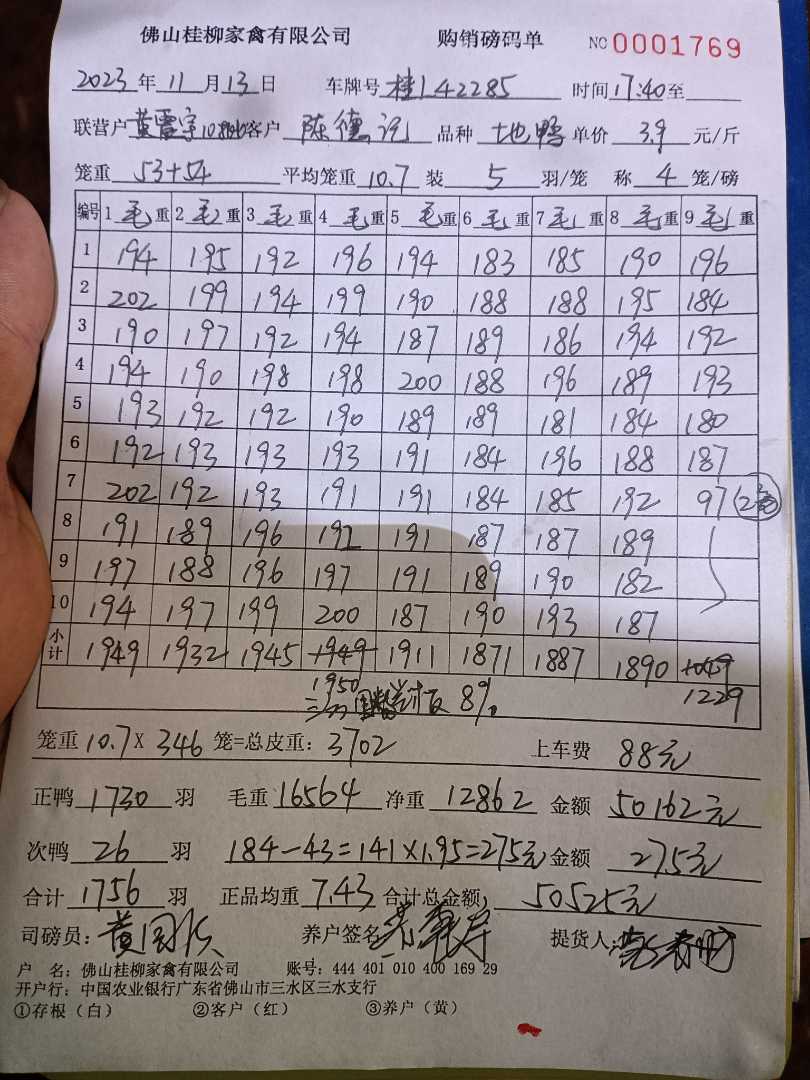 佛山桂柳家禽有限公司 购销磅码单 NO 0001769
2023年11月13日 车牌号 桂J42285 时间17:40至
联营户 黄震宇 客户 陈德 品种 土也鸭 单价 3.9 元/斤
笼重 53+54 平均笼重 10.7 装 5 羽/笼 称 4 笼/磅
编号 1毛重 2毛重 3毛重 4毛重 5毛重 6毛重 7毛重 8毛重 9毛重
1 194 195 192 196 194 183 185 190 196
2 202 199 194 199 190 188 188 195 184
3 190 197 192 194 187 189 186 194 192
4 194 190 198 198 200 188 196 189 193
5 193 192 192 190 189 189 181 184 180
6 192 193 193 193 191 184 196 188 187
7 202 192 193 191 191 184 185 192 97(2笼)
8 191 189 196 192 191 187 187 189
9 197 188 196 197 191 189 190 182
10 194 197 199 200 187 190 193 187
小计 1949 1932 1945 1949 1911 1871 1887 1890 1049
1950 8% 1229
笼重 10.7 X 346 笼=总皮重: 3702 上车费 88元
正鸭 1730 羽 毛重 16564 净重 12862 金额 50162元
次鸭 26 羽 184-43=141×1.95=275元 金额 275元
合计 1756 羽 正品均重 7.43 合计总金额 50525元
司磅员: 黄 养户签名 提货人:
户 名: 佛山桂柳家禽有限公司 账号: 444 401 010 400 169 29
开户行: 中国农业银行广东省佛山市三水区三水支行
①存根(白) ②客户(红) ③养户(黄)